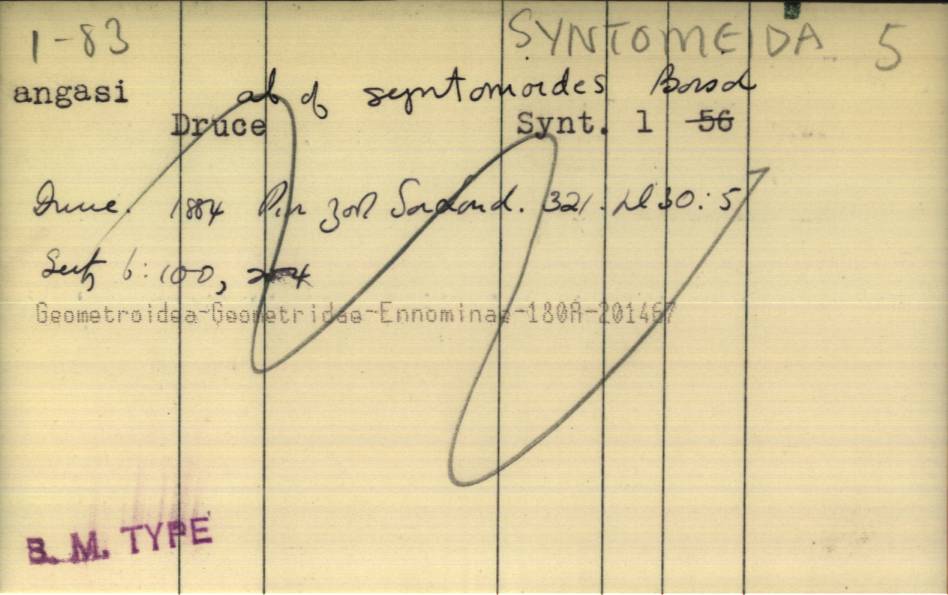 1-83 SYNTOMEIDA 5
angasi ab of syntomoides Boisd
Druce Synt. 1 56
Druce. 1884 Proc zool Soc Lond. 321. pl 30: 5
Seitz 6: 100, 204
Geometroidea-Geometridae-Ennominae-180A-201467
B. M. TYPE